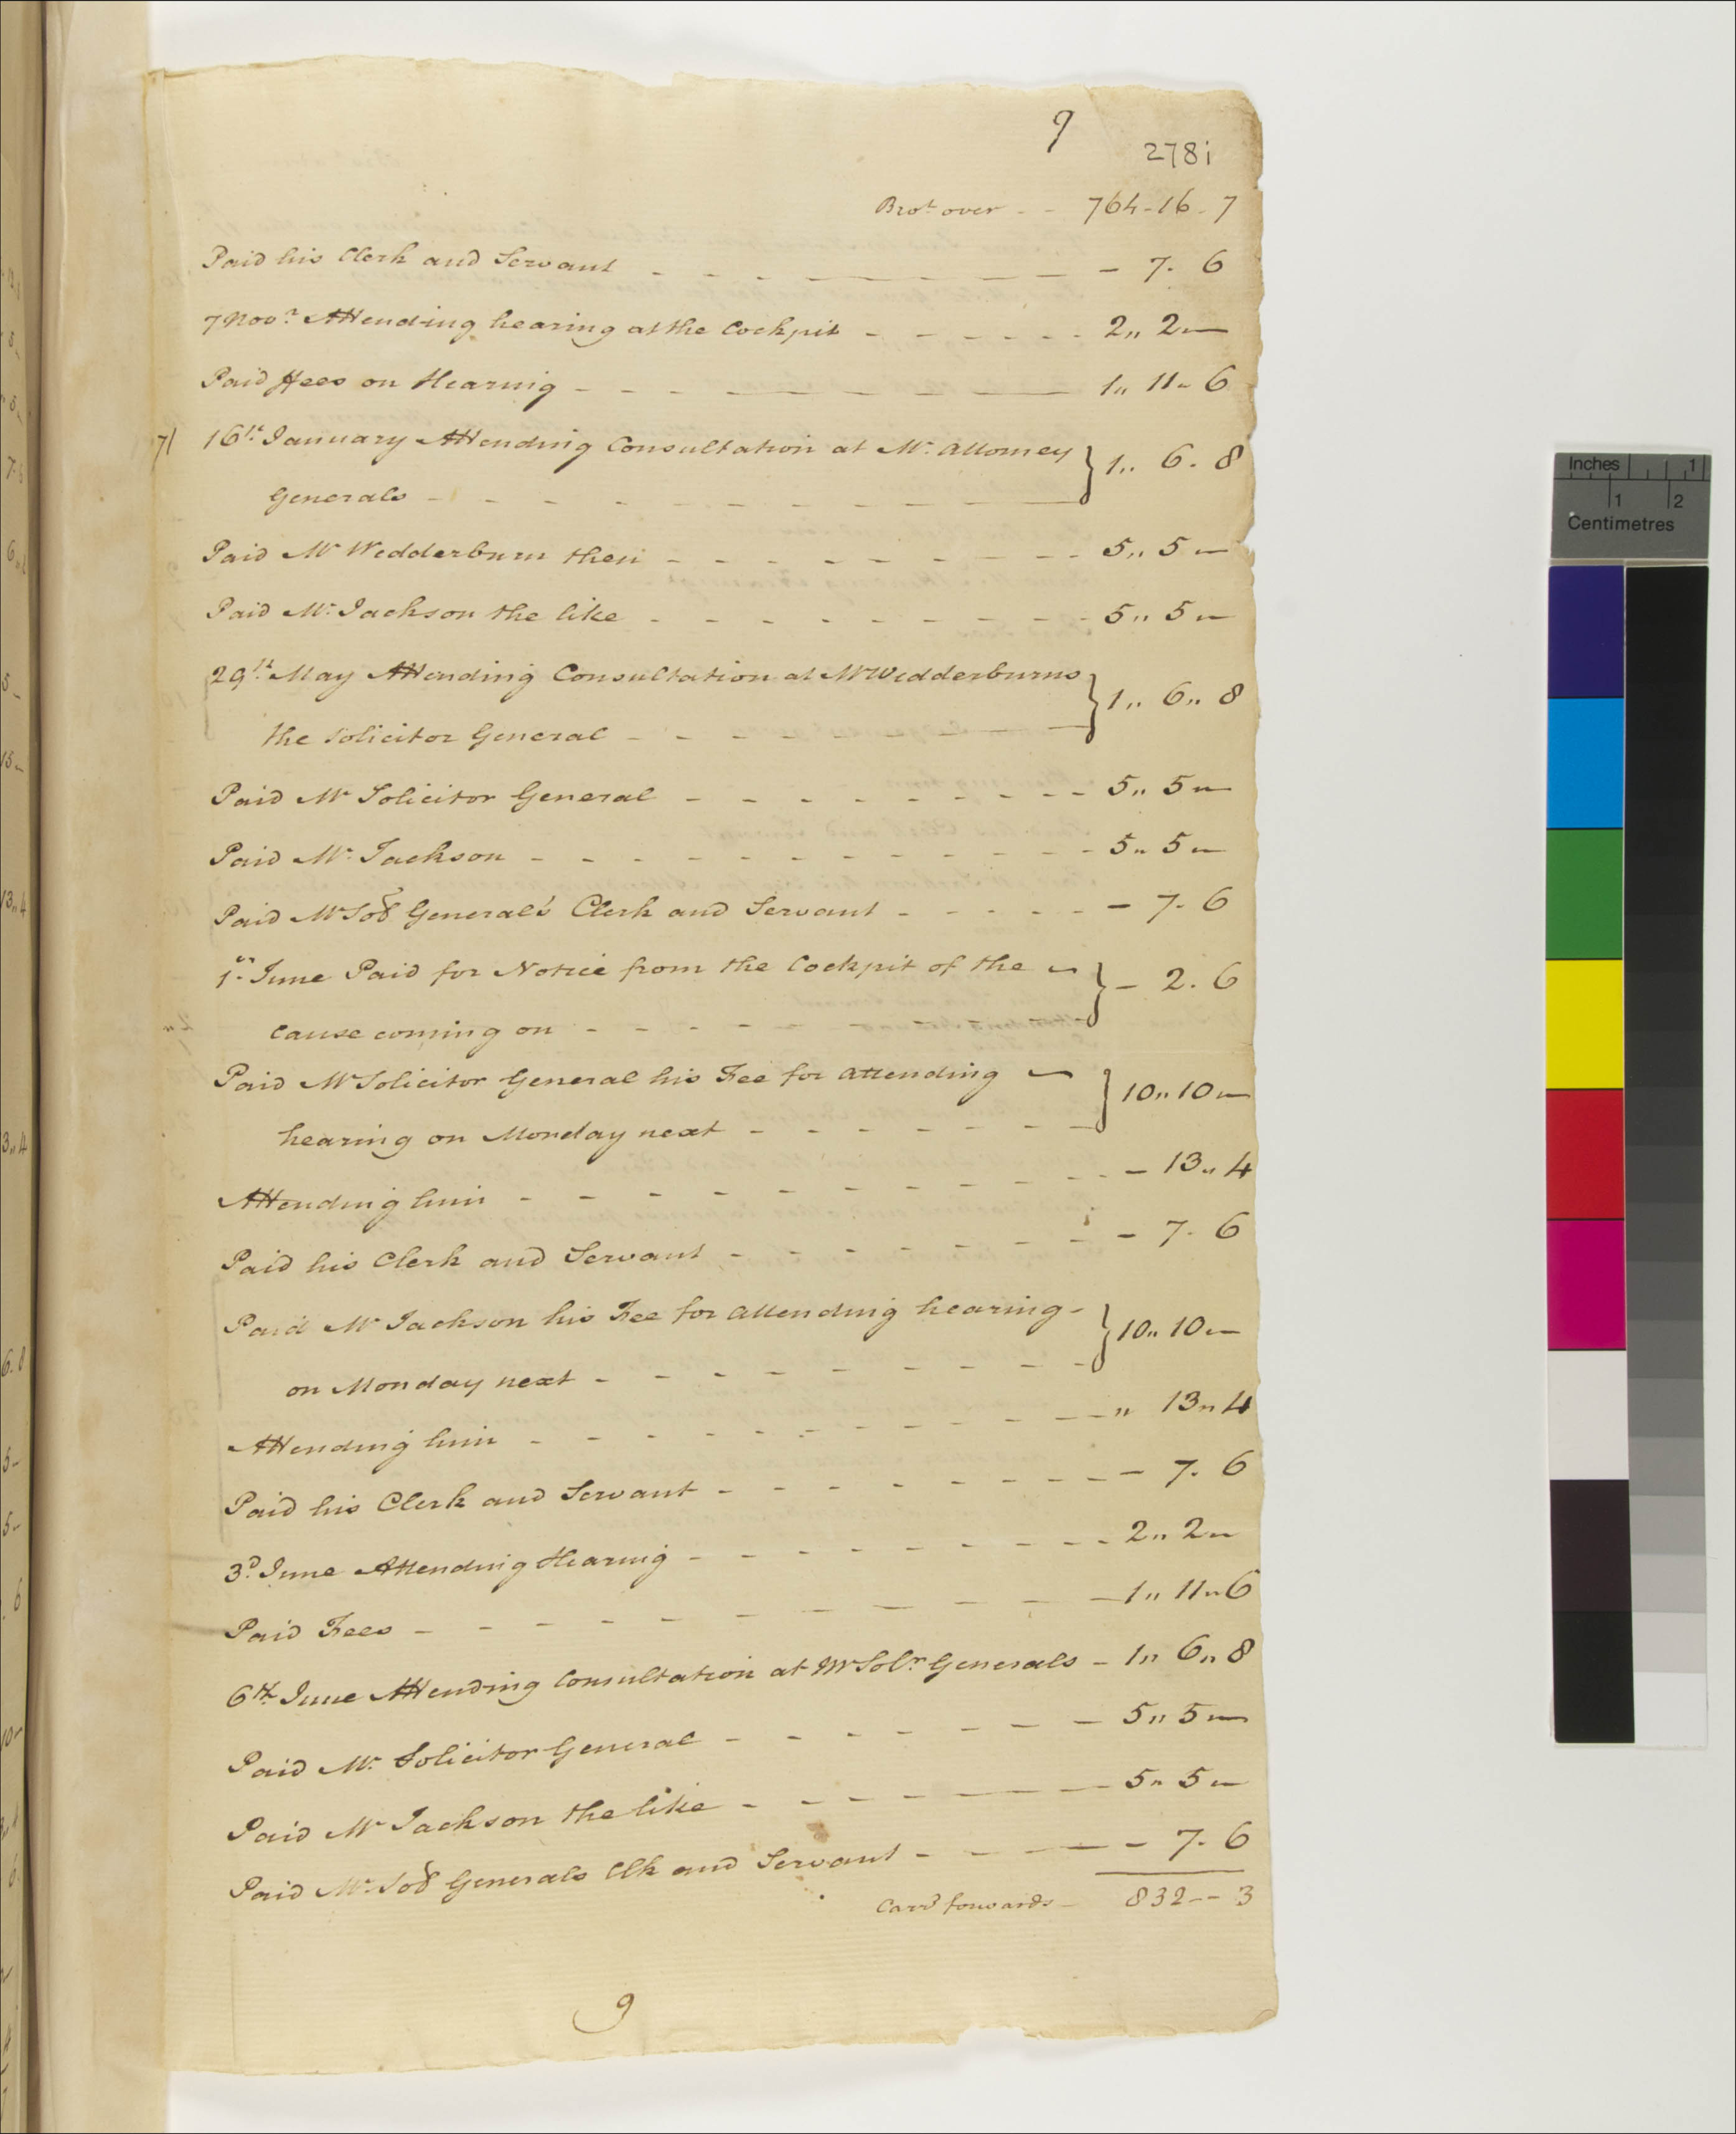 9
278i
Brot over - - 764-16-7
Paid his Clerk and Servant - - - - - 7. 6
7 Novr. Attending hearing at the Cockpit - - - - - 2,, 2,,—
Paid ffees on Hearing - - - - - 1,, 11- 6
71 16th. January Attending Consultation at Mr. Attorney
Generals - - - - - 1,, 6. 8
Paid Mr Wedderburn then - - - - - 5,, 5,,—
Paid Mr. Jackson the like - - - - - 5,, 5,,—
29th. May Attending Consultation at Mr Wedderburns
the Solicitor General - - - - - 1,, 6,, 8
Paid Mr Solicitor General - - - - - 5,, 5,,—
Paid Mr. Jackson - - - - - 5,, 5,,—
Paid Mr Solr General's Clerk and Servant - - - - - 7. 6
1st. June Paid for Notice from the Cockpit of the
cause coming on - - - - - 2. 6
Paid Mr Solicitor General his Fee for attending
hearing on Monday next - - - - - 10,, 10,,—
Attending him - - - - - 13,, 4
Paid his Clerk and Servant - - - - - 7. 6
Paid Mr Jackson his Fee for attending hearing -
on Monday next - - - - - 10,, 10,,—
Attending him - - - - - ,, 13,, 4
Paid his Clerk and Servant - - - - - 7. 6
3d. June Attending Hearing - - - - - 2,, 2,,—
Paid Fees - - - - - 1,, 11,, 6
6th. June Attending Consultation at Mr Solr. Generals - 1,, 6,, 8
Paid Mr. Solicitor General - - - - - 5,, 5,,—
Paid Mr Jackson the like - - - - - 5,, 5,,—
Paid Mr. Solr Generals Clk and Servant - - - - - 7. 6
Carrd forwards - 832 - - 3
9
Inches 1
1 2
Centimetres